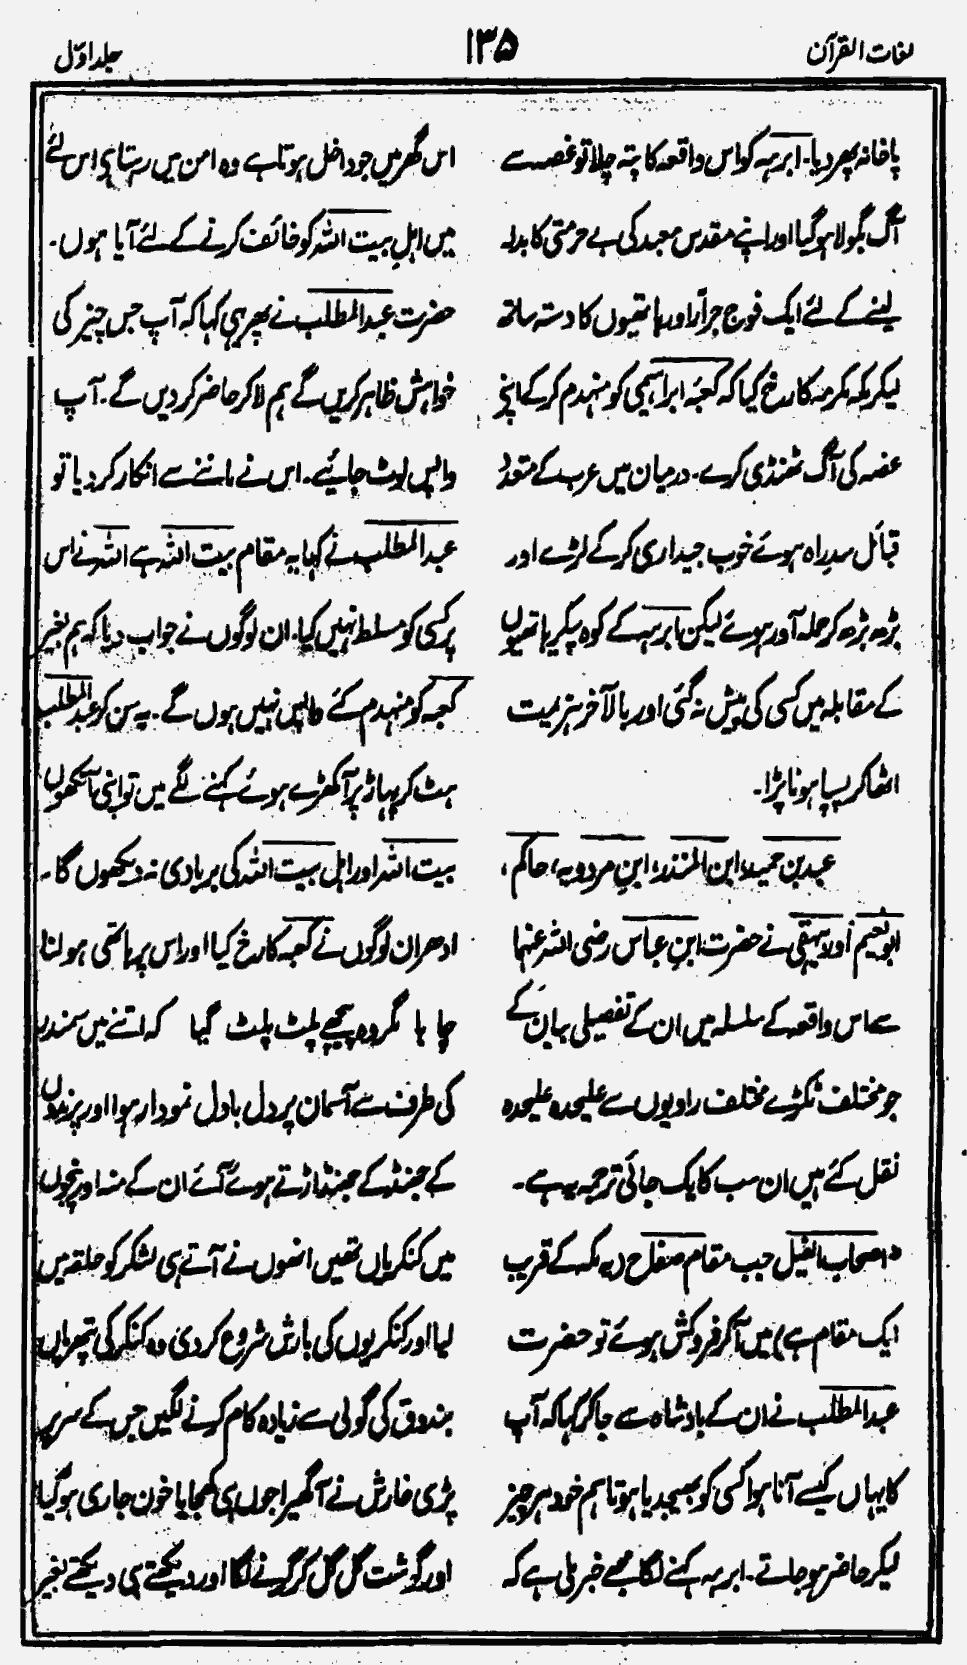 لغات القرآن
۱۳۵
جلد اوّل
پاخانہ پھر دیا۔ ابرہہ کو اس واقعہ کا پتہ چلا تو غصہ سے
آگ بگولا ہو گیا اور اپنے مقدس معبد کی بے حرمتی کا بدلہ
لینے کے لئے ایک فوج جرّار اور ہاتھیوں کا دستہ ساتھ
لیکر مکہ مکرمہ کا رخ کیا کہ کعبۂ ابراہیمی کو منہدم کر کے اپنے
غصہ کی آگ ٹھنڈی کرے۔ درمیان میں عرب کے متعدد
قبائل سدِ راہ ہوئے خوب جیداری کر کے لڑے اور
بڑھ بڑھ کر حملہ آور ہوئے لیکن ابرہہ کے کوہ پیکر ہاتھیوں
کے مقابلہ میں کسی کی پیش نہ گئی اور بالآخر ہزیمت
اٹھا کر پسپا ہونا پڑا۔
عبد بن حمید، ابن المنذر، ابنِ مردویہ، حاکم،
ابو نعیم اور بیہقی نے حضرت ابنِ عباس رضی اللہ عنہما
سے اس واقعہ کے سلسلہ میں ان کے تفصیلی بیان کے
جو مختلف ٹکڑے مختلف راویوں سے علیحدہ علیحدہ
نقل کئے ہیں ان سب کا یک جائی ترجمہ یہ ہے۔
"اصحاب الفیل جب مقام صفاح (یہ مکہ کے قریب
ایک مقام ہے) میں آکر فروکش ہوئے تو حضرت
عبدالمطلب نے ان کے بادشاہ سے جا کر کہا کہ آپ
کا یہاں کیسے آنا ہوا کسی کو بھیجدیا ہوتا ہم خود ہر چیز
لیکر حاضر ہو جاتے۔ ابرہہ کہنے لگا مجھے خبر ملی ہے کہ
اس گھر میں جو داخل ہوتا ہے وہ امن میں رہتا ہی اس لئے
میں اہلِ بیت اللہ کو خائف کرنے کے لئے آیا ہوں۔
حضرت عبدالمطلب نے پھر یہی کہا کہ آپ جس چیز کی
خواہش ظاہر کریں گے ہم لا کر حاضر کر دیں گے۔ آپ
واپس لوٹ جائیے۔ اس نے ماننے سے انکار کر دیا تو
عبدالمطلب نے کہا یہ مقام بیت اللہ ہے اللہ نے اس
پر کسی کو مسلط نہیں کیا۔ ان لوگوں نے جواب دیا کہ ہم بغیر
کعبہ کو منہدم کئے واپس نہیں ہوں گے۔ یہ سن کر عبدالمطلب
ہٹ کر پہاڑ پر آ کھڑے ہوئے کہنے لگے میں تو اپنی آنکھوں
بیت اللہ اور اہل بیت اللہ کی بربادی نہ دیکھوں گا۔
ادھر ان لوگوں نے کعبہ کا رخ کیا اور اس پر ہاتھی ہولنا
چاہا مگر وہ پیچھے پلٹ پلٹ گیا کہ اتنے میں سمندر
کی طرف سے آسمان پر دل بادل نمودار ہوا اور پرندوں
کے جھنڈ کے جھنڈ اڑتے ہوئے آئے ان کے منہ اور پنجوں
میں کنکریاں تھیں انھوں نے آتے ہی لشکر کو حلقہ میں
لیا اور کنکریوں کی بارش شروع کر دی وہ کنکر کی پتھریاں
بندوق کی گولی سے زیادہ کام کرنے لگیں جس کے سر پر
پڑی خارش نے آ گھیرا جوں ہی کھجایا خون جاری ہو گیا
اور گوشت گل گل کر گرنے لگا اور دیکھتے ہی دیکھتے بغیر